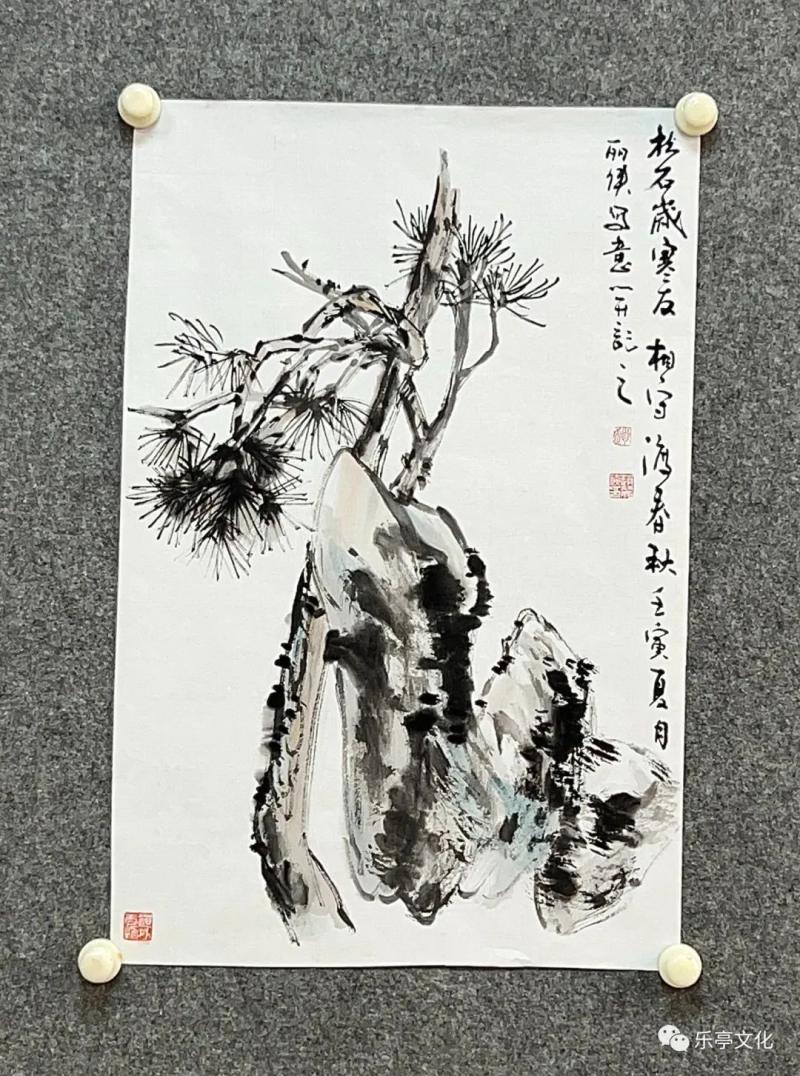 松石歲寒友 相守渡春秋 壬寅夏月
丽侠写意并記之
乐亭文化